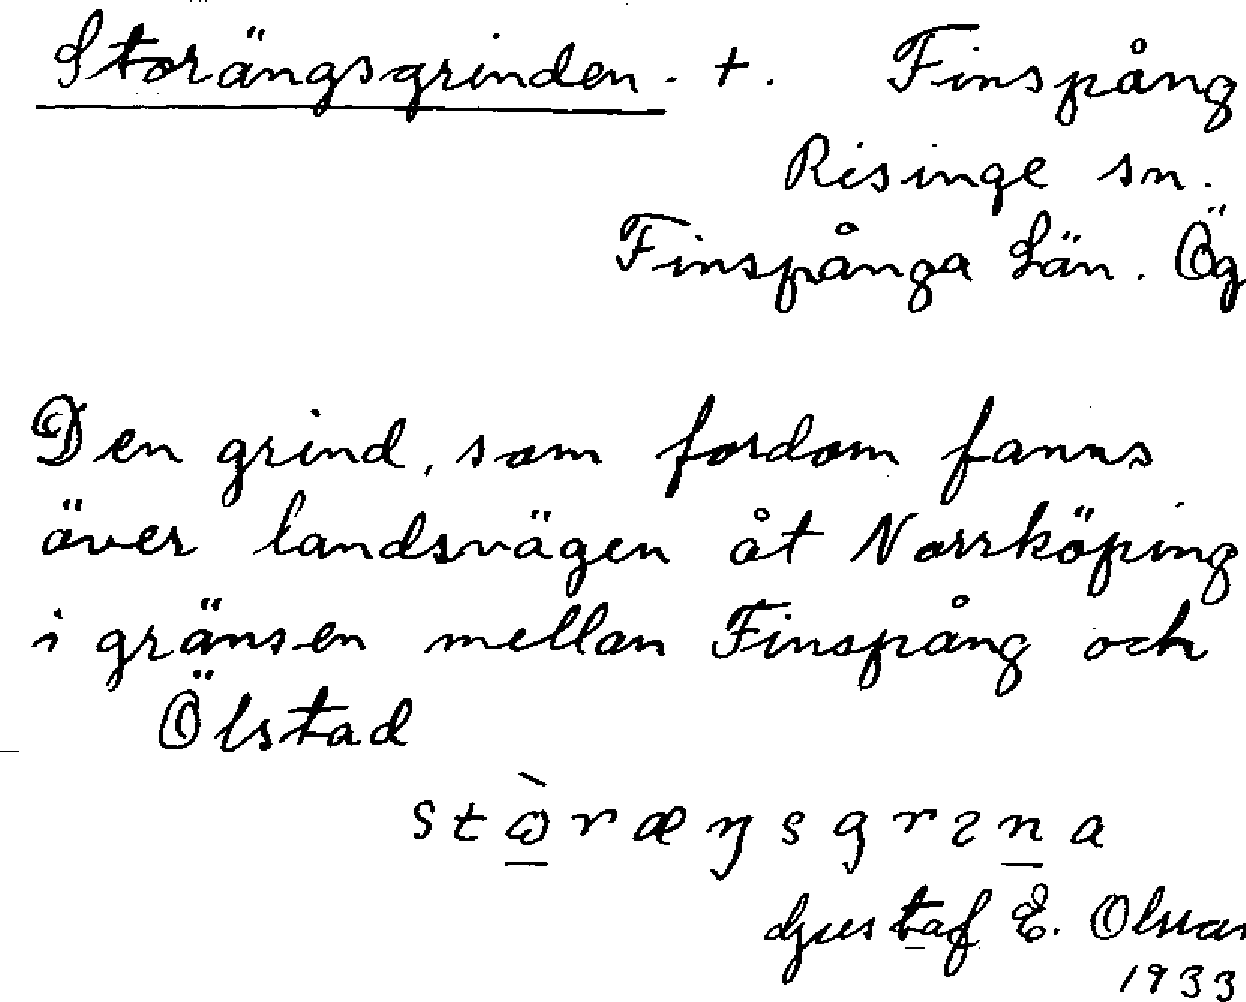 Storängsgrinden. +. Finspång
Risinge sn.
Finspånga Län. Ög
Den grind, som fordom fanns
över landsvägen åt Norrköping
i gränsen mellan Finspång och
Ölstad
Gustaf E. Olsson
1933